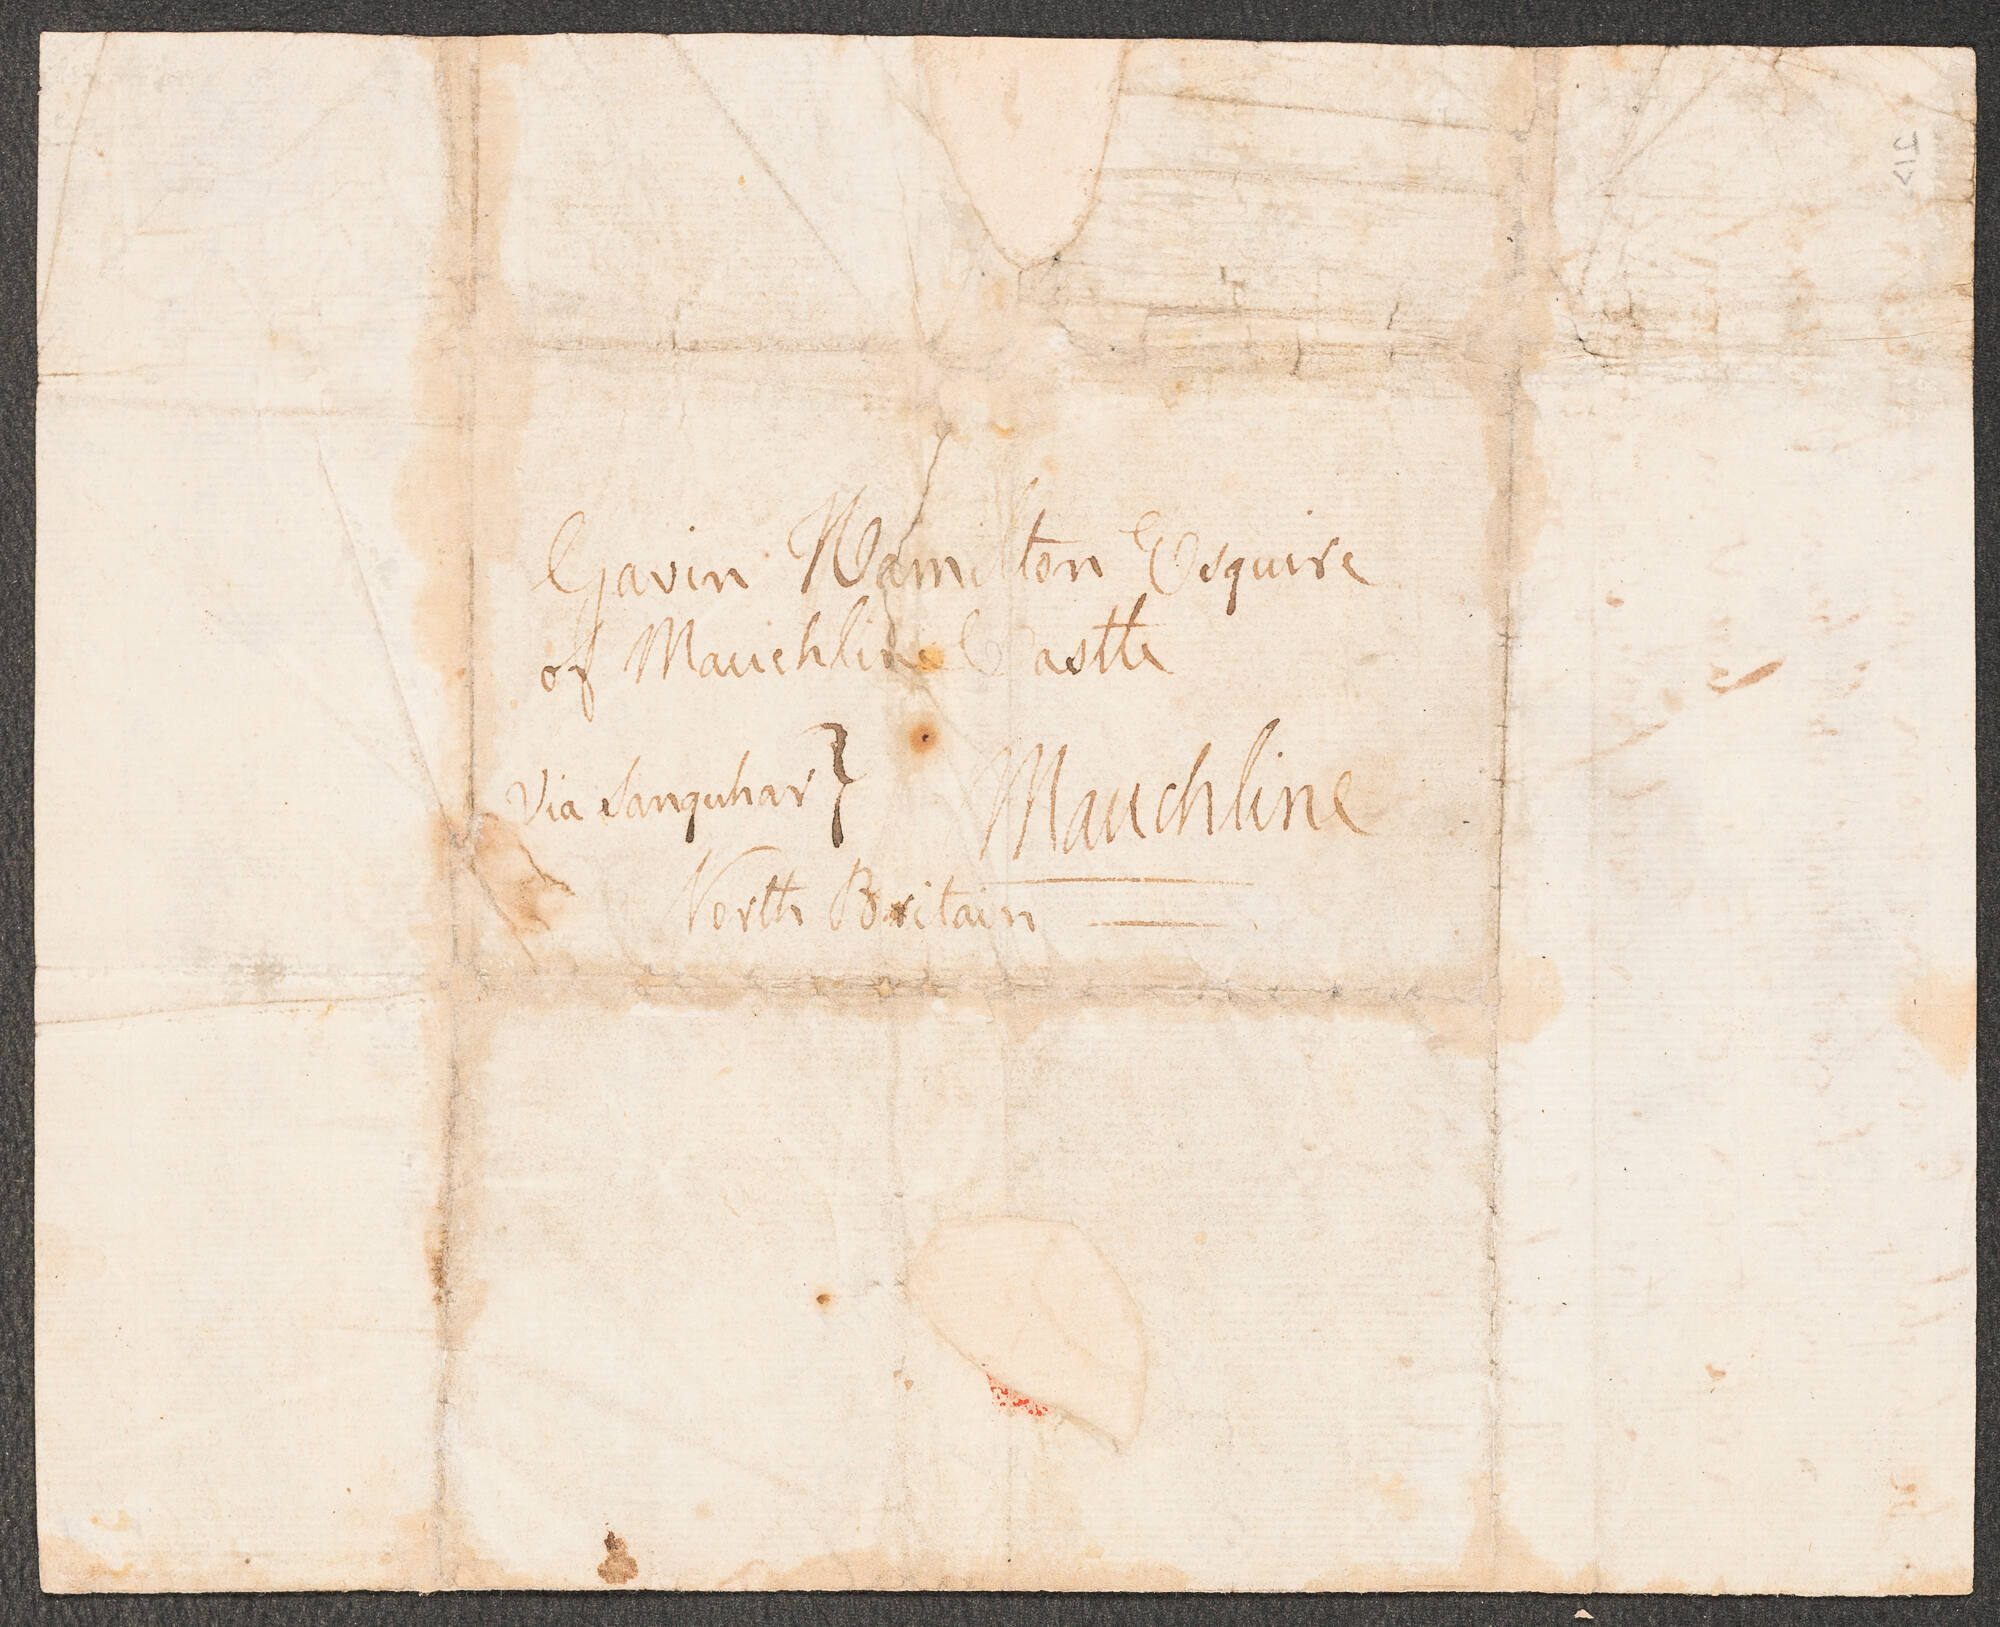 Gavin Hamilton Esquire
of Mauchline Castle
Via Sanquhar} Mauchline
North Britain